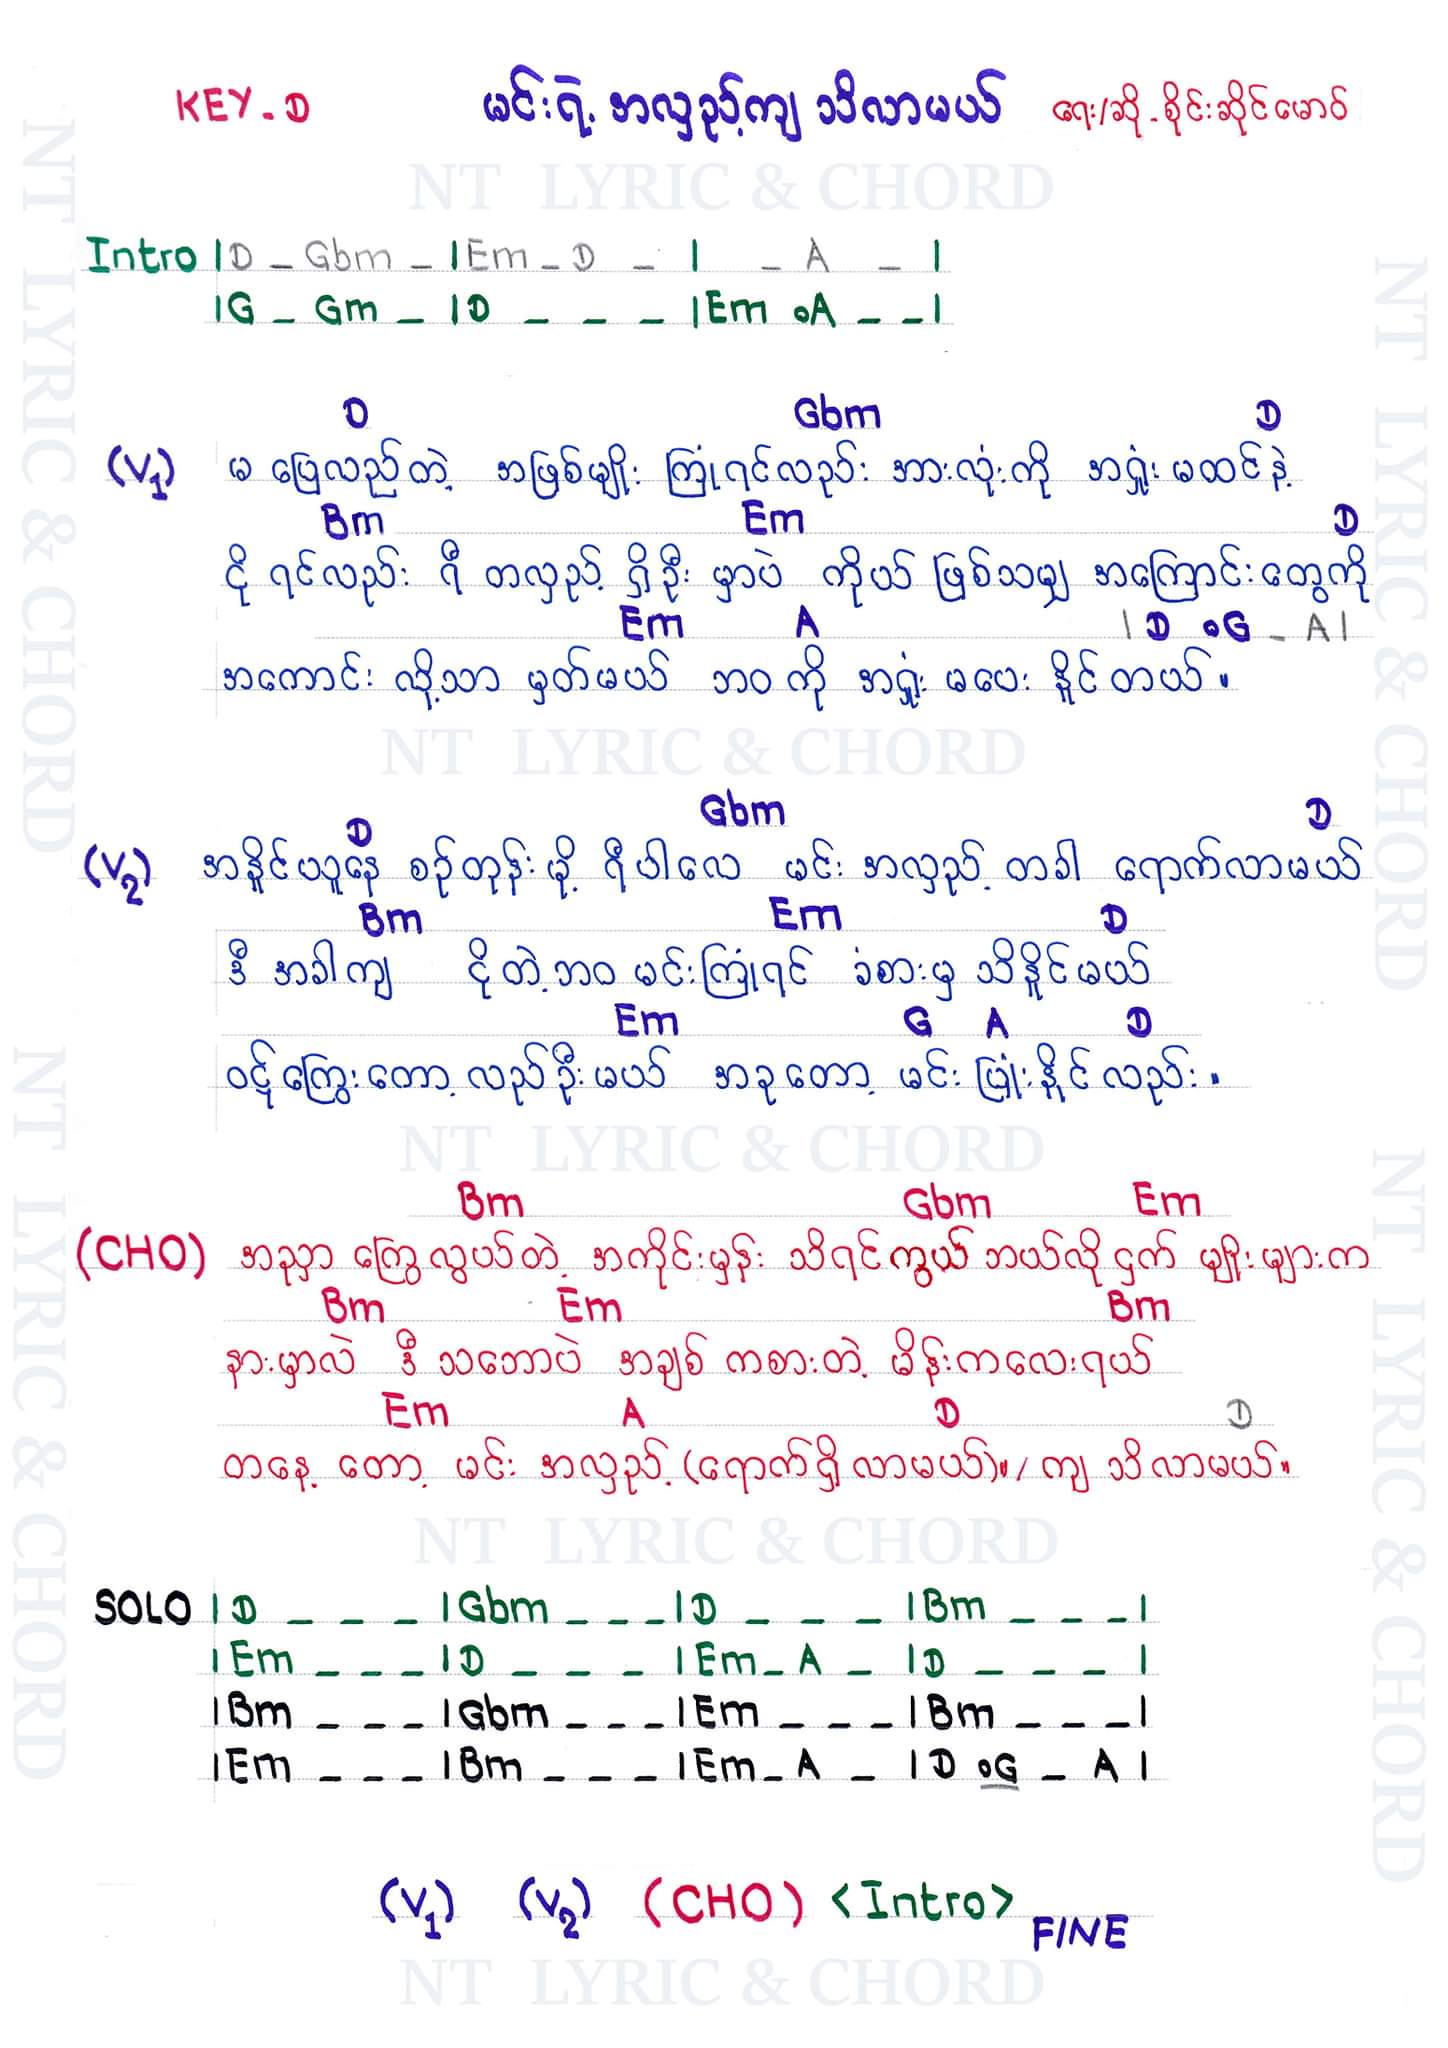 KEY - D မင်းရဲ့ အလှည့်ကျ သိလာမယ် ရေး/ဆို - စိုင်းဆိုင်မောဝ်
NT LYRIC & CHORD
Intro | D _ Gbm _ | Em _ D _ | _ A _ |
| G _ Gm _ | D _ _ _ | Em •A _ _ |
D Gbm D
(V1) မ ပြေလည်တဲ့ အဖြစ်မျိုး ကြုံရင်လည်း အားလုံးကို အရှုံး မထင်နဲ့
Bm Em D
ငို ရင်လည်း ရီ တလှည့် ရှိဦး မှာပဲ ကိုယ် ဖြစ်သမျှ အကြောင်းတွေကို
Em A | D •G _ A |
အကောင်း လို့သာ မှတ်မယ် ဘဝ ကို အရှုံး မပေး နိုင်တယ်။
NT LYRIC & CHORD
Gbm
D D
(V2) အနိူင်ယူနေ စဉ်တုန်း မို့ ရီပါလေ မင်း အလှည့် တခါ ရောက်လာမယ်
Bm Em D
ဒီ အခါကျ ငိုတဲ့ဘဝ မင်းကြုံရင် ခံစားမှ သိနိူင်မယ်
Em G A D
ဝဋ်ကြွေးတော့ လည်ဦးမယ် အခုတော့ မင်း ပြုံးနိုင်လည်း။
NT LYRIC & CHORD
Bm Gbm Em
(CHO) အညှာ ကြွေလွယ်တဲ့ အကိုင်းမှန်း သိရင်ကွယ် ဘယ်လို ငှက် မျိုးများက
Bm Em Bm
နားမှာလဲ ဒီ သဘောပဲ အချစ် ကစားတဲ့ မိန်းကလေးရယ်
Em A D D
တနေ့ တော့ မင်း အလှည့် (ရောက်ရှိလာမယ်)။ / ကျ သိလာမယ်။
NT LYRIC & CHORD
SOLO | D _ _ _ | Gbm _ _ _ | D _ _ _ | Bm _ _ _ |
| Em _ _ _ | D _ _ _ | Em _ A _ | D _ _ _ |
| Bm _ _ _ | Gbm _ _ _ | Em _ _ _ | Bm _ _ _ |
| Em _ _ _ | Bm _ _ _ | Em _ A _ | D •G _ A |
(V1) (V2) (CHO) <Intro>
FINE
NT LYRIC & CHORD
NT LYRIC & CHORD
NT LYRIC & CHORD
NT LYRIC & CHORD
NT LYRIC & CHORD